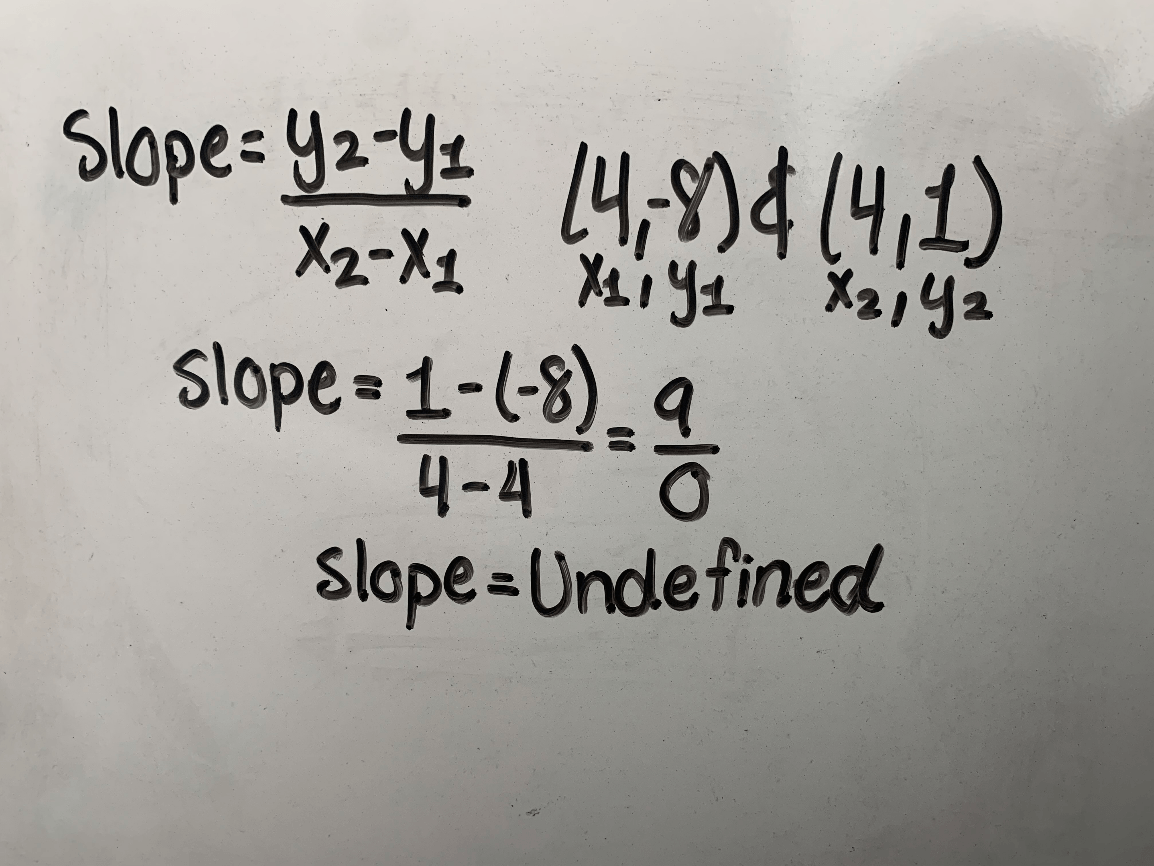 Slope = y2-y1
x2-x1
(4,-8) & (4,1)
x1, y1 x2, y2
Slope = 1-(-8) = 9
4-4 0
Slope = Undefined